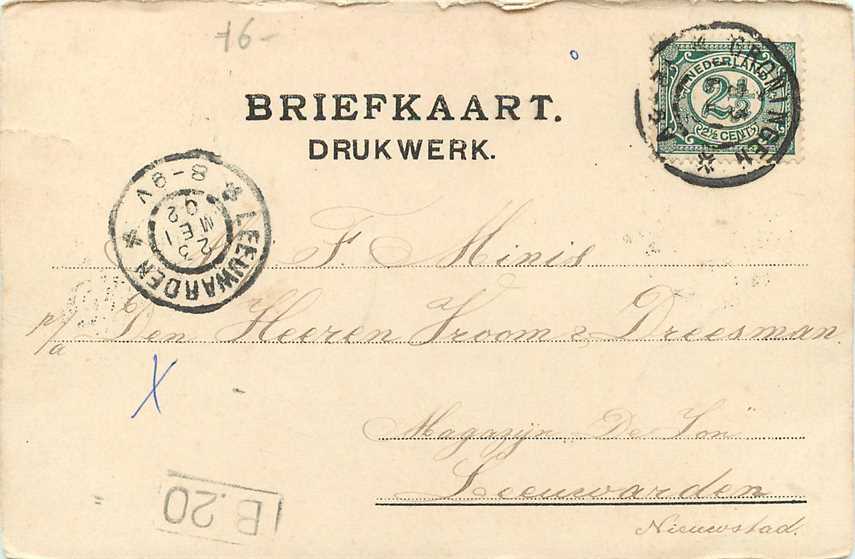 76-
BRIEFKAART.
DRUKWERK.
NEDERLAND
2½
(2½ CENT)
GRONINGEN
LEEUWARDEN
23 MEI
02
8-9V
F. Minis
p/a Den Heeren Vroom & Dreesman
Magazijn "De Zon"
Leeuwarden
Nieuwstad.
B.20